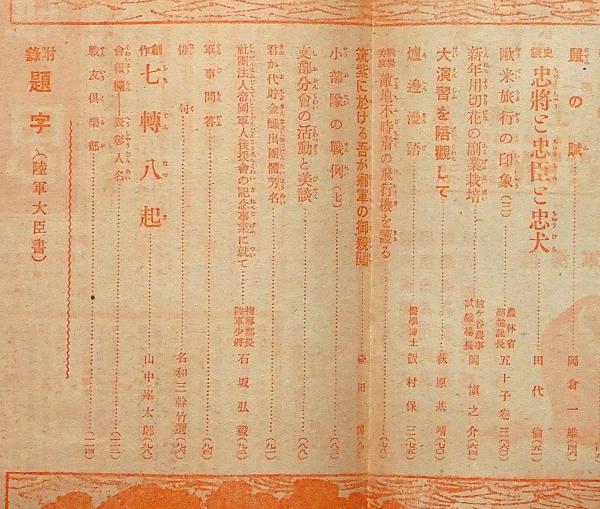 賦の賦 岡倉一雄(四六)
史談 忠將と忠臣と忠犬 田代倫(五一)
歐米旅行の印象(三) 農林省副業課長 五十子卷三(六〇)
新年用切花の副業栽培 越ヶ谷農事試驗場長 岡愼之介(六四)
大演習を陪觀して 萩原基靖(七〇)
爐邊漫語 醫學博士 飯村保三(七五)
敵地不時着の飛行機を護る(七八)
筑紫に於ける吾が鄕軍の御親閲
小部隊の戰例(七)(八三)
支部分會の活動と美談(八八)
君が代貯金醵出團體芳名(九一)
社團法人帝國軍人後援會の記念事業に就て 指導部長陸軍少將 石坂弘毅(九三)
軍事問答(九四)
俳句 名和三幹竹選(九六)
創作 七轉八起 山中峯太郎(九八)
會報欄―表彰人名(一一二)
戰友倶樂部(一一四)
附錄 題字(陸軍大臣書)